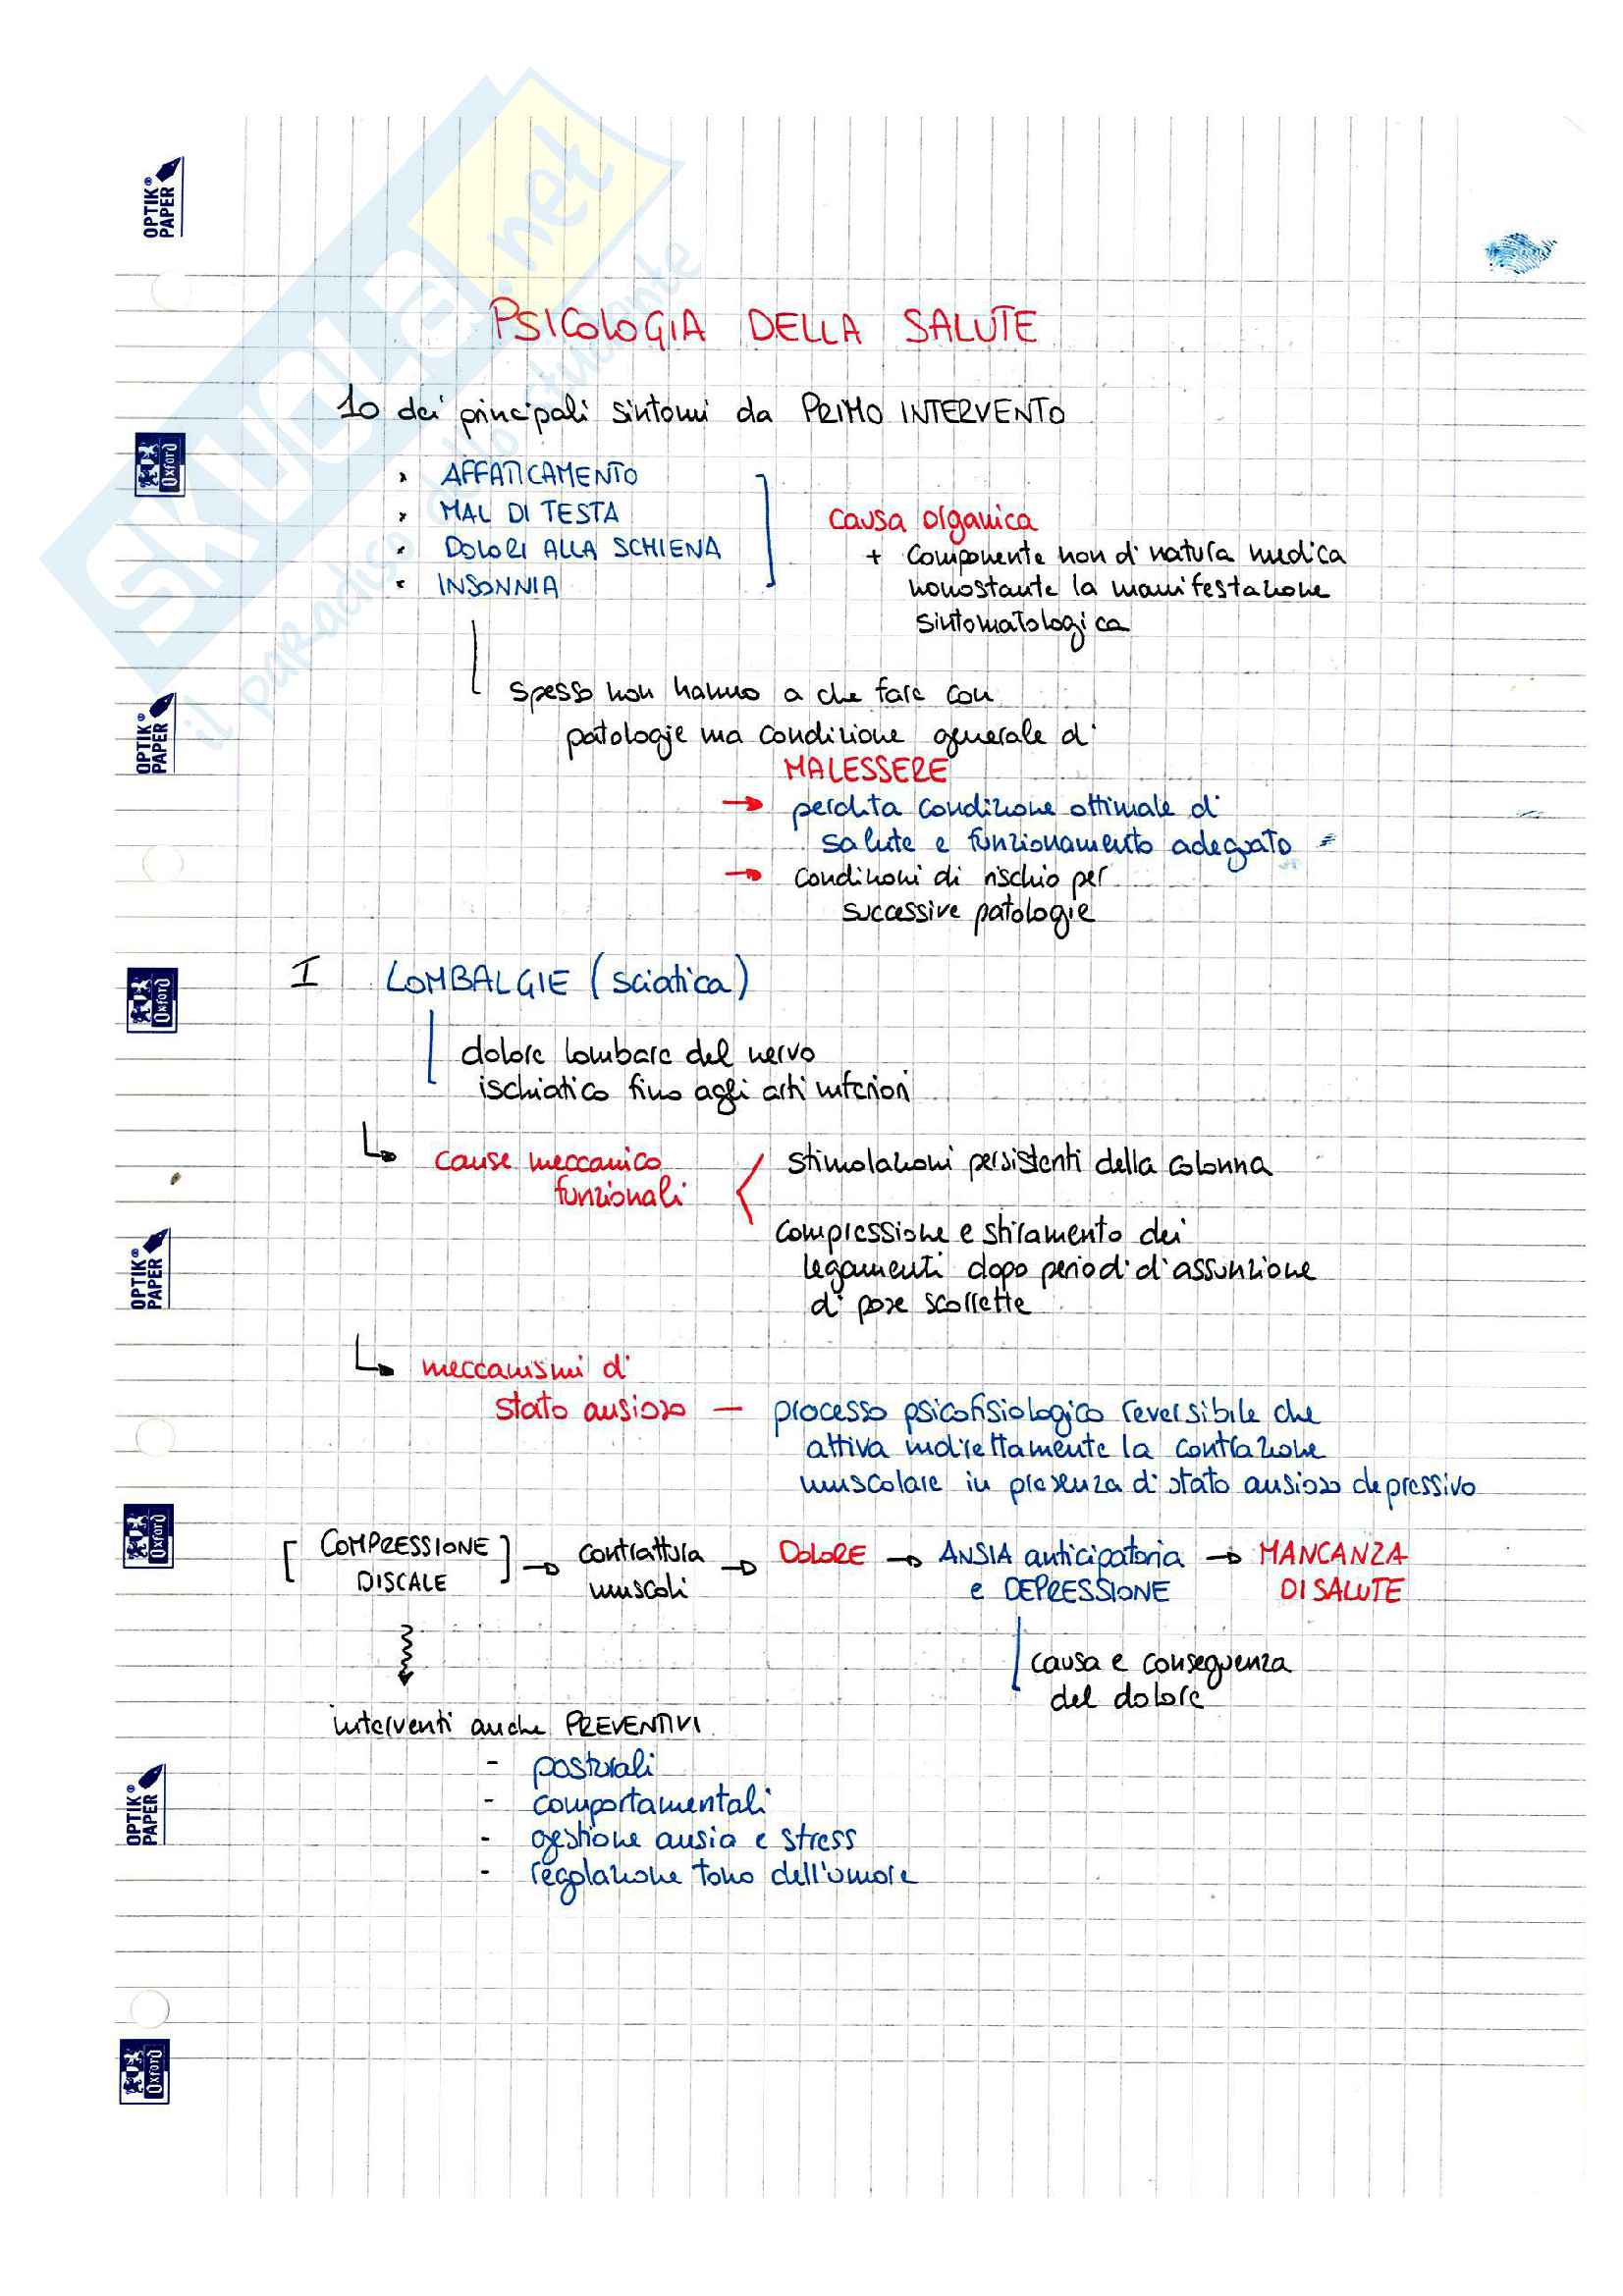 PSICOLOGIA DELLA SALUTE
10 dei principali sintomi da PRIMO INTERVENTO
AFFATICAMENTO
MAL DI TESTA
DOLORI ALLA SCHIENA
INSONNIA
causa organica
+ componente non di natura medica
nonostante la manifestazione
sintomatologica
spesso non hanno a che fare con
patologie ma condizione generale di
MALESSERE
→ perdita condizione ottimale di
salute e funzionamento adeguato
→ condizioni di rischio per
successive patologie
I LOMBALGIE (sciatica)
dolore lombare del nervo
ischiatico fino agli arti inferiori
cause meccanico
funzionali
stimolazioni persistenti della colonna
compressione e stiramento dei
legamenti dopo periodi d'assunzione
di pose scorrette
meccanismi di
stato ansioso — processo psicofisiologico reversibile che
attiva indirettamente la contrazione
muscolare in presenza di stato ansioso depressivo
[COMPRESSIONE DISCALE] → contrattura muscoli → DOLORE → ANSIA anticipatoria e DEPRESSIONE → MANCANZA DI SALUTE
causa e conseguenza
del dolore
interventi anche PREVENTIVI
- posturali
- comportamentali
- gestione ansia e stress
- regolazione tono dell'umore
OPTIK® PAPER
Oxford
OPTIK® PAPER
Oxford
OPTIK® PAPER
Oxford
OPTIK® PAPER
Oxford
SKUOLA.net
il paradiso dello studente